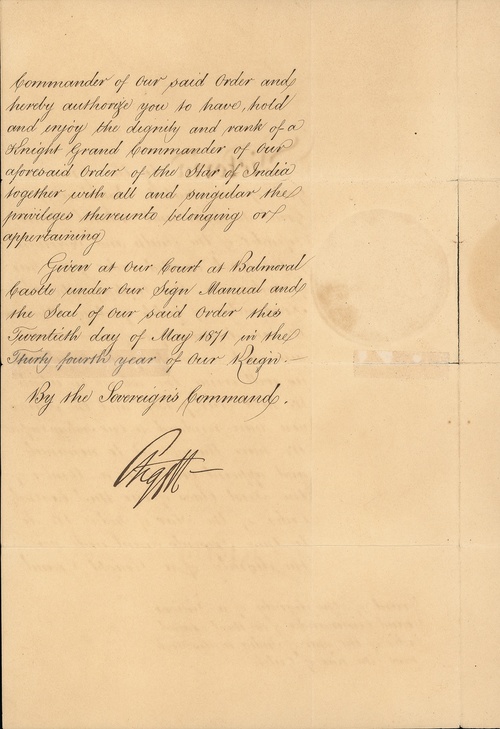 Commander of Our said Order and
hereby authorize you to have, hold
and enjoy the dignity and rank of a
Knight Grand Commander of Our
aforesaid Order of the Star of India
together with all and singular the
privileges thereunto belonging or
appertaining
Given at Our Court at Balmoral
Castle under Our Sign Manual and
the Seal of Our said Order this
Twentieth day of May 1871 in the
Thirty fourth year of Our Reign.—
By the Sovereign's Command.
Argyll